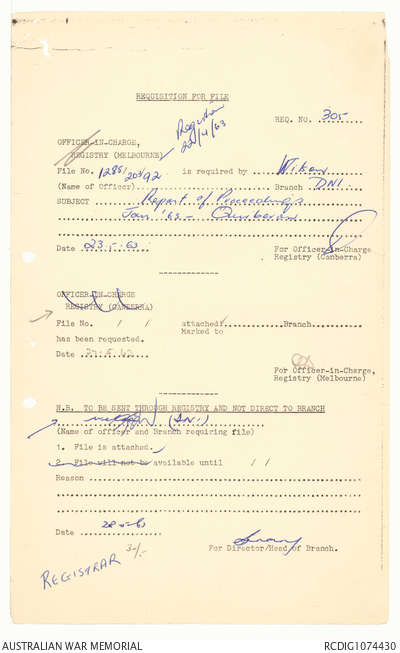 REQUISITION FOR FILE
REQ. NO. 305
22/4/63
OFFICER-IN-CHARGE,
REGISTRY (MELBOURNE)
File No. 1285/203/92 is required by
(Name of Officer) Branch DNI.
SUBJECT Report of Proceedings
Jan '63 -
Date 23.5.63
For Officer-in-Charge
Registry (Canberra)
OFFICER-IN-CHARGE
REGISTRY (CANBERRA)
File No. / / attached/ Branch
Marked to
has been requested.
Date 27.5.63
For Officer-in-Charge,
Registry (Melbourne)
N.B. TO BE SENT THROUGH REGISTRY AND NOT DIRECT TO BRANCH
(DNI)
(Name of officer and Branch requiring file)
1. File is attached.
2. File will not be available until / /
Reason
Date 28-5-63
For Director/Head of Branch.
REGISTRAR
AUSTRALIAN WAR MEMORIAL RCDIG1074430